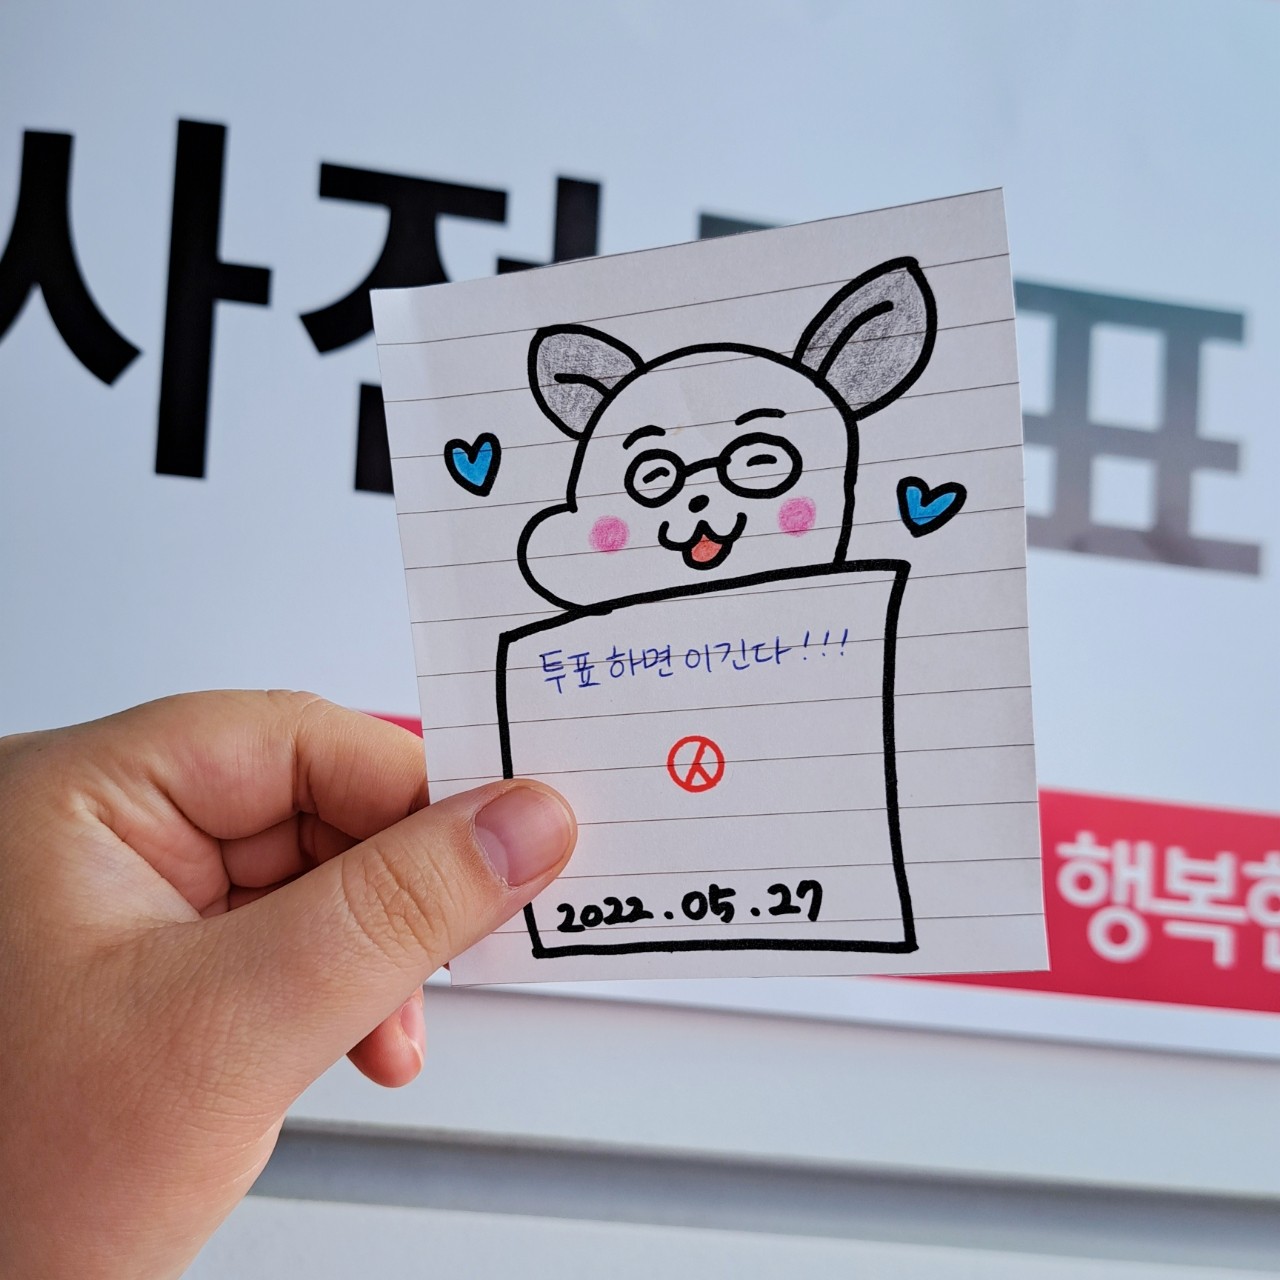 사전투표
투표하면 이긴다!!!
2022.05.27
행복한